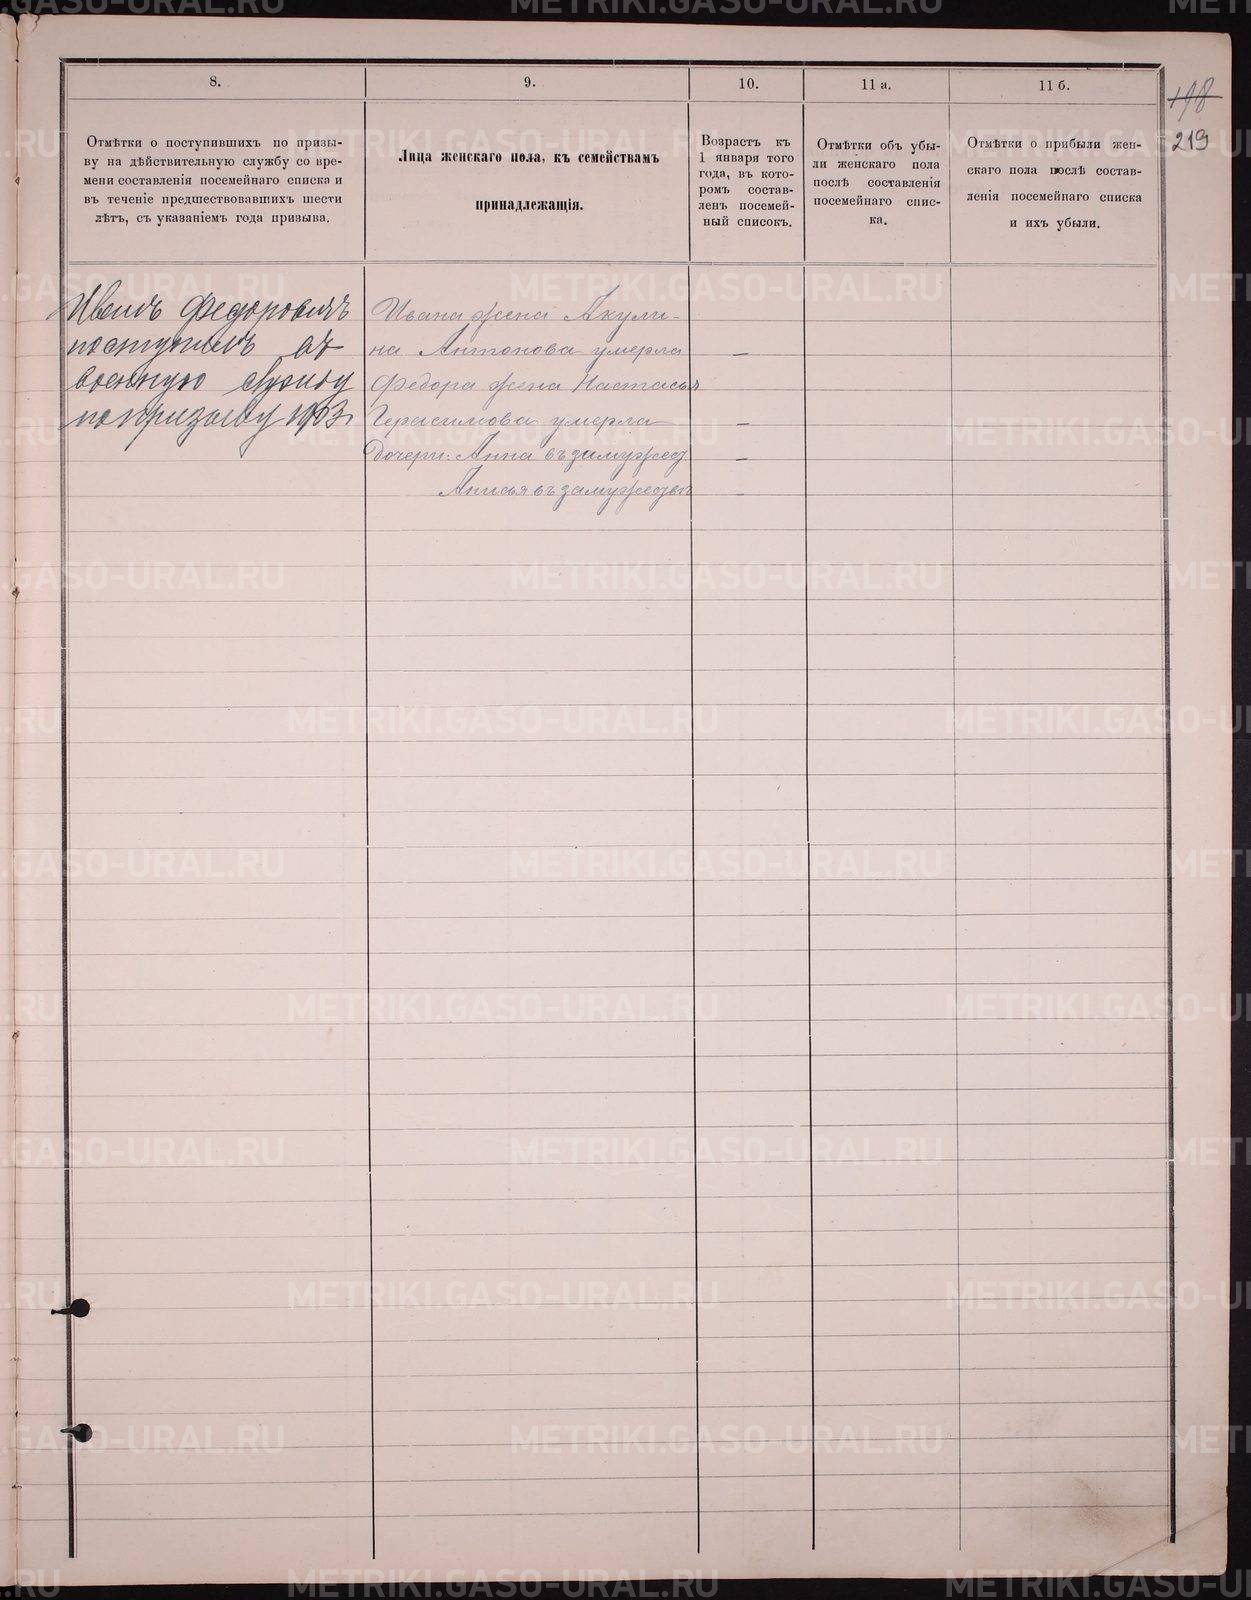 8.
9.
10.
11 а.
11 б.
198
219
Отмѣтки о поступившихъ по призы-
ву на дѣйствительную службу со вре-
мени составленія посемейнаго списка и
въ теченіе предшествовавшихъ шести
лѣтъ, съ указаніемъ года призыва.
Лица женскаго пола, къ семействамъ
принадлежащія.
Возрастъ къ
1 января того
года, въ кото-
ромъ состав-
ленъ посемей-
ный списокъ.
Отмѣтки объ убы-
ли женскаго пола
послѣ составленія
посемейнаго спис-
ка.
Отмѣтки о прибыли жен-
скаго пола послѣ состав-
ленія посемейнаго списка
и ихъ убыли.
Иванъ Федоровичъ
поступилъ въ
военную службу
по призыву 1903 г
Ивана жена Акули-
на Антонова умерла —
Федора жена Настасья
Герасимова умерла —
Дочери: Анна въ замужес —
Анисья въ замужествѣ —
METRIKI.GASO-URAL.RU